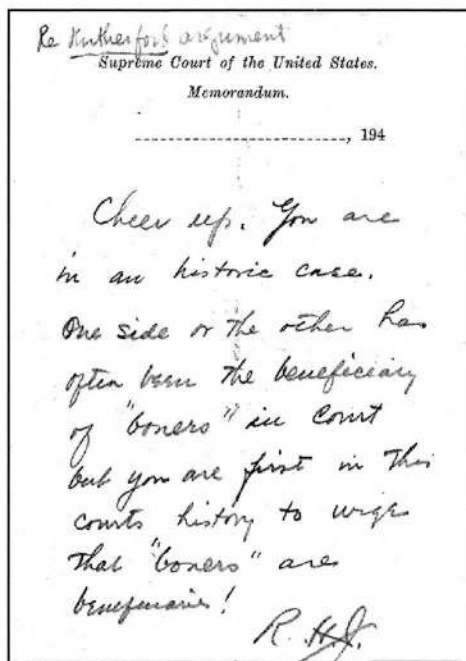 Re Rutherford argument
Supreme Court of the United States.
Memorandum.
, 194
Cheer up. You are
in an historic case.
One side or the other has
often been the beneficiary
of "boners" in court
but you are first in this
courts history to urge
that "boners" are
beneficiaries!
R.H.J.